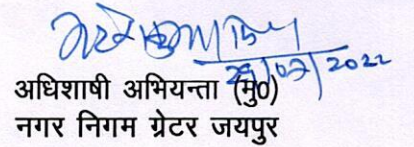 29/07/2022
अधिशाषी अभियन्ता (मु0)
नगर निगम ग्रेटर जयपुर